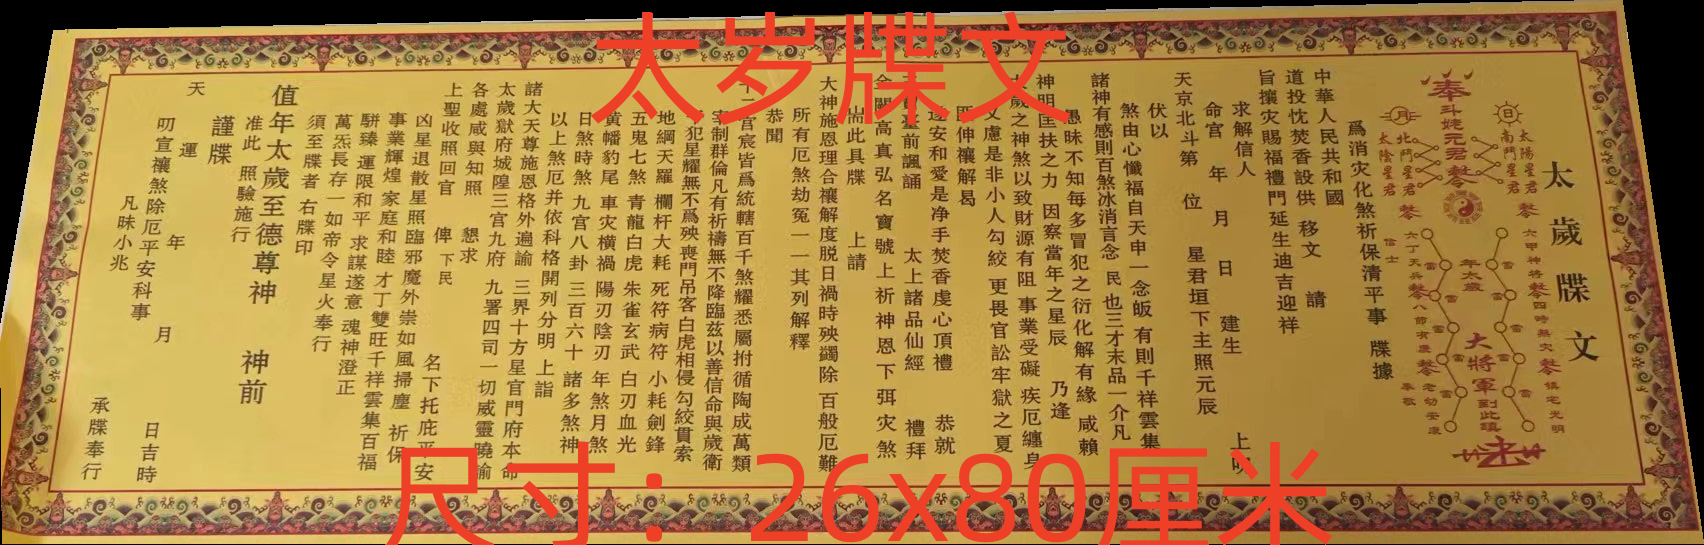 太岁牒文
尺寸：26x80厘米
太歲牒文
奉斗姥元君
日
月
太陽星君
南鬥星君
北鬥星君
太陰星君
六甲神將
四時無灾
鎮宅光明
六丁天兵
八節有慶
老幼安康
信士
奉敬
年太歲
大將軍到此鎮
爲消灾化煞祈保清平事 牒據
中華人民共和國
道投忱焚香設供 移文 請
旨攘灾賜福禮門延生迪吉迎祥
求解信人
命宫 年 月 日 建生 上叩
天京北斗第 位 星君垣下主照元辰
伏以
煞由心懺福自天申一念皈 有則千祥雲集
諸神有感則百煞冰消言念 民 也三才末品一介凡
愚昧不知每多冒犯之衍化解有緣 咸賴
神明匡扶之力 因察當年之星辰 乃逢
歲之神煞以致財源有阻 事業受礙 疾厄纏身
慮是非小人勾絞 更畏官訟牢獄之夏
即伸禳解曷
安和愛是净手焚香虔心頂禮 恭就
臺前諷誦 太上諸品仙經 禮拜
金闕高真弘名寶號上祈神恩下弭灾煞
耑此具牒 上請
大神施恩理合禳解度脱日禍時殃蠲除 百般厄難
所有厄煞劫冤一一其列解釋
恭聞
十二宫宸皆爲統轄百千煞耀悉屬拊循陶成萬類
宰制群倫凡有祈禱無不降臨兹以善信命與歲衛
犯星耀無不爲殃 喪門吊客白虎相侵勾絞貫索
地綱天羅 欄杆大耗 死符病符 小耗劍鋒
五鬼七煞 青龍白虎 朱雀玄武 白刃血光
黄幡豹尾 車灾横禍 陽刃陰刃 年煞月煞
日煞時煞 九宫八卦 三百六十 諸多煞神
以上煞厄并依科格開列分明 上詣
諸大天尊施恩格外遍諭 三界十方星官門府本命
太歲獄府城隍三宫九府 九署四司一切威靈曉諭
各處咸與知照 懇求
上聖收照回官 俾下民 名下托庇平安
凶星退散星照臨邪魔外祟如風掃塵 祈保
事業輝煌 家庭和睦 才丁雙旺千祥雲集百福
駢臻 運限和平 求謀遂意 魂神澄正
萬炁長存 一如帝令星火奉行
須至牒者 右牒印
值年太歲至德尊神 神前
准此 照驗施行
謹牒
凡昧小兆
叨宣禳煞除厄平安科事
天運 年 月 日吉時
承牒奉行